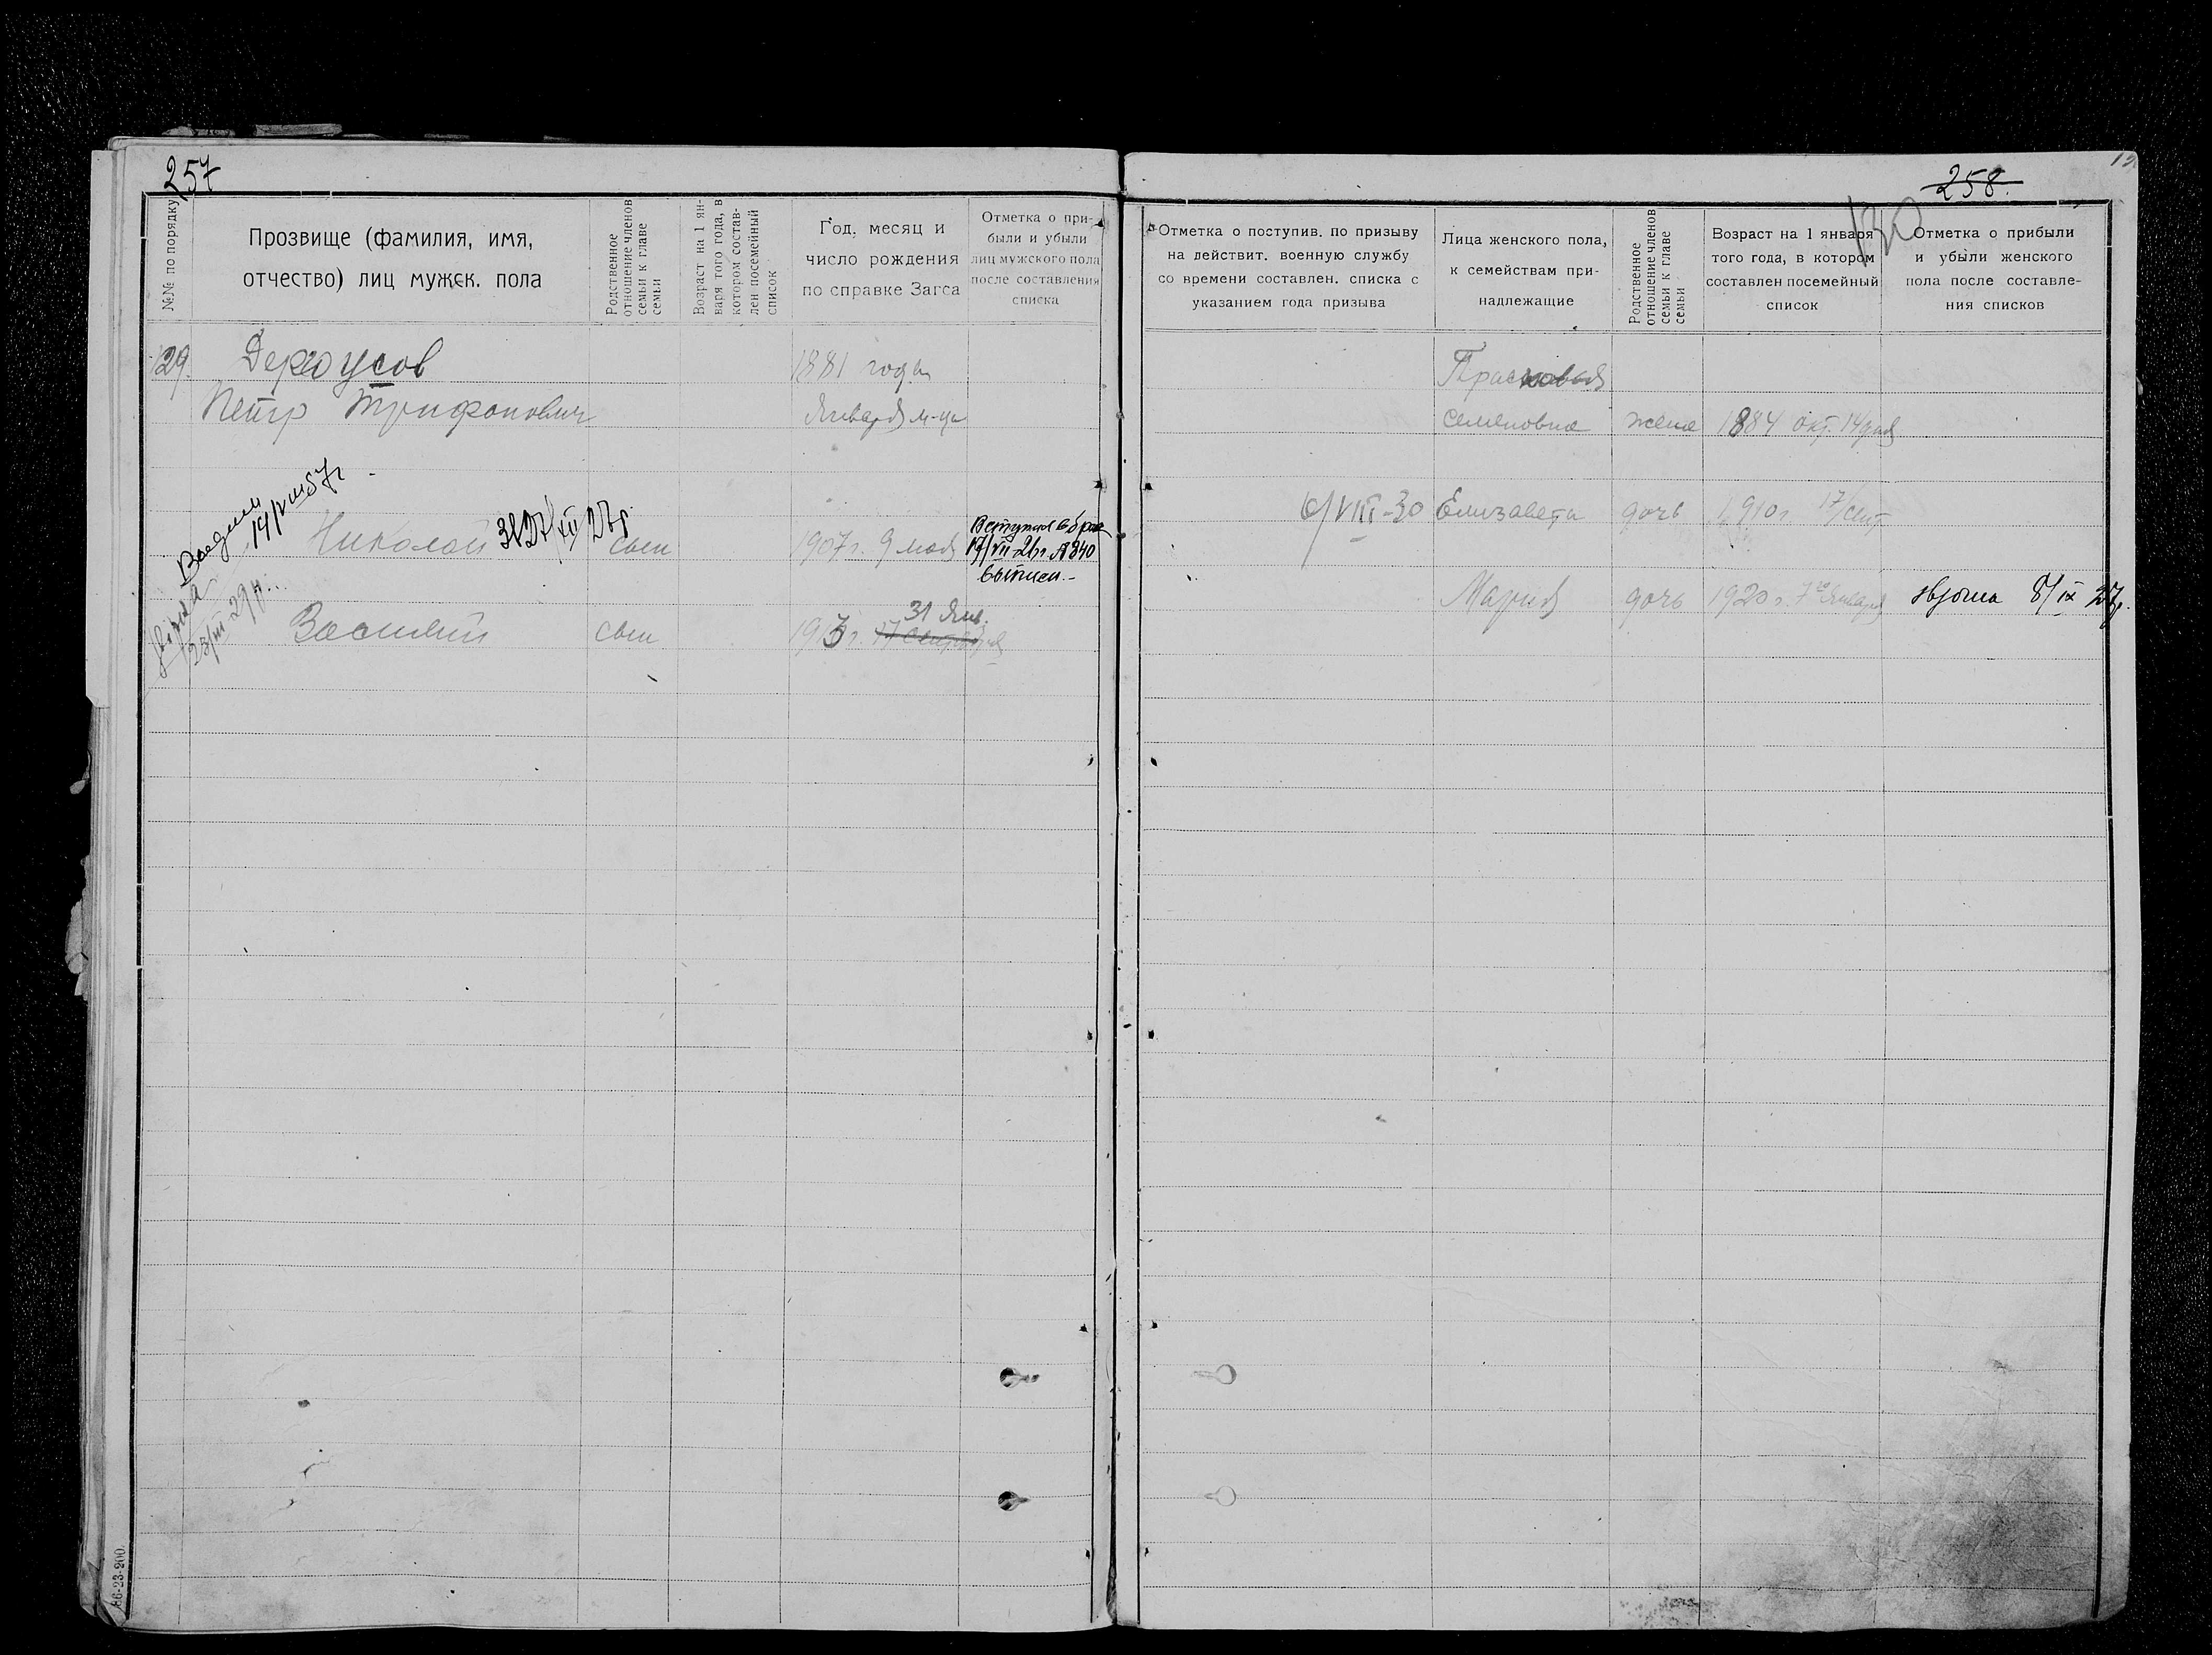 257
№№ по порядку
Прозвище (фамилия, имя,
отчество) лиц мужск. пола
Родственное
отношение членов
семьи к главе
семьи
Возраст на 1 ян-
варя того года, в
котором состав-
лен посемейный
список
Год, месяц и
число рождения
по справке Загса
Отметка о при-
были и убыли
лиц мужского пола
после составления
списка
129.
1881 года
Петр Трифонович
Января м-ца
Николай
сын
1907 г. 9 мая
Василий
сын
31 Янв.
1913 г.
86-23-200.
258.
130
Отметка о поступив. по призыву
на действит. военную службу
со времени составлен. списка с
указанием года призыва
Лица женского пола,
к семействам при-
надлежащие
Родственное
отношение членов
семьи к главе
семьи
Возраст на 1 января
того года, в котором
составлен посемейный
список
Отметка о прибыли
и убыли женского
пола после составле-
ния списков
Прасковья
Семеновна жена 1884 окт. 14 дня
6/VIII-30 Елизавета дочь 1910 г 17/сент
Мария дочь 1920 г. января 8/IX 27г.